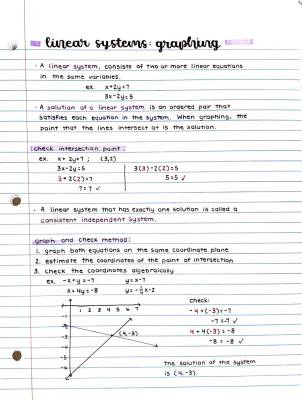 linear systems: graphing
· A linear system, consists of two or more linear equations
in the same variables.
ex. x+2y=7
3x-2y=5
· A solution of a linear system is an ordered pair that
satisfies each equation in the system. When graphing, the
point that the lines intersect at is the solution.
check intersection point:
ex. x+2y=7 ; (3,2)
3x-2y=5
3+2(2)=7
7=7 ✓
3(3)-2(2)=5
5=5 ✓
· A linear system that has exactly one solution is called a
consistent independent system.
graph and check method:
1. graph both equations on the same coordinate plane
2. estimate the coordinates of the point of intersection
3. check the coordinates algebraically
ex. -x+y=-7 y=x-7
x+4y=-8 y=-¼x-2
1 2 3 4 5 6 7
-1
-2
-3
-4
-5
-6
(4,-3)
Check:
-4+(-3)=-7
-7=-7 ✓
4+4(-3)=-8
-8=-8 ✓
The solution of the system
is (4,-3).